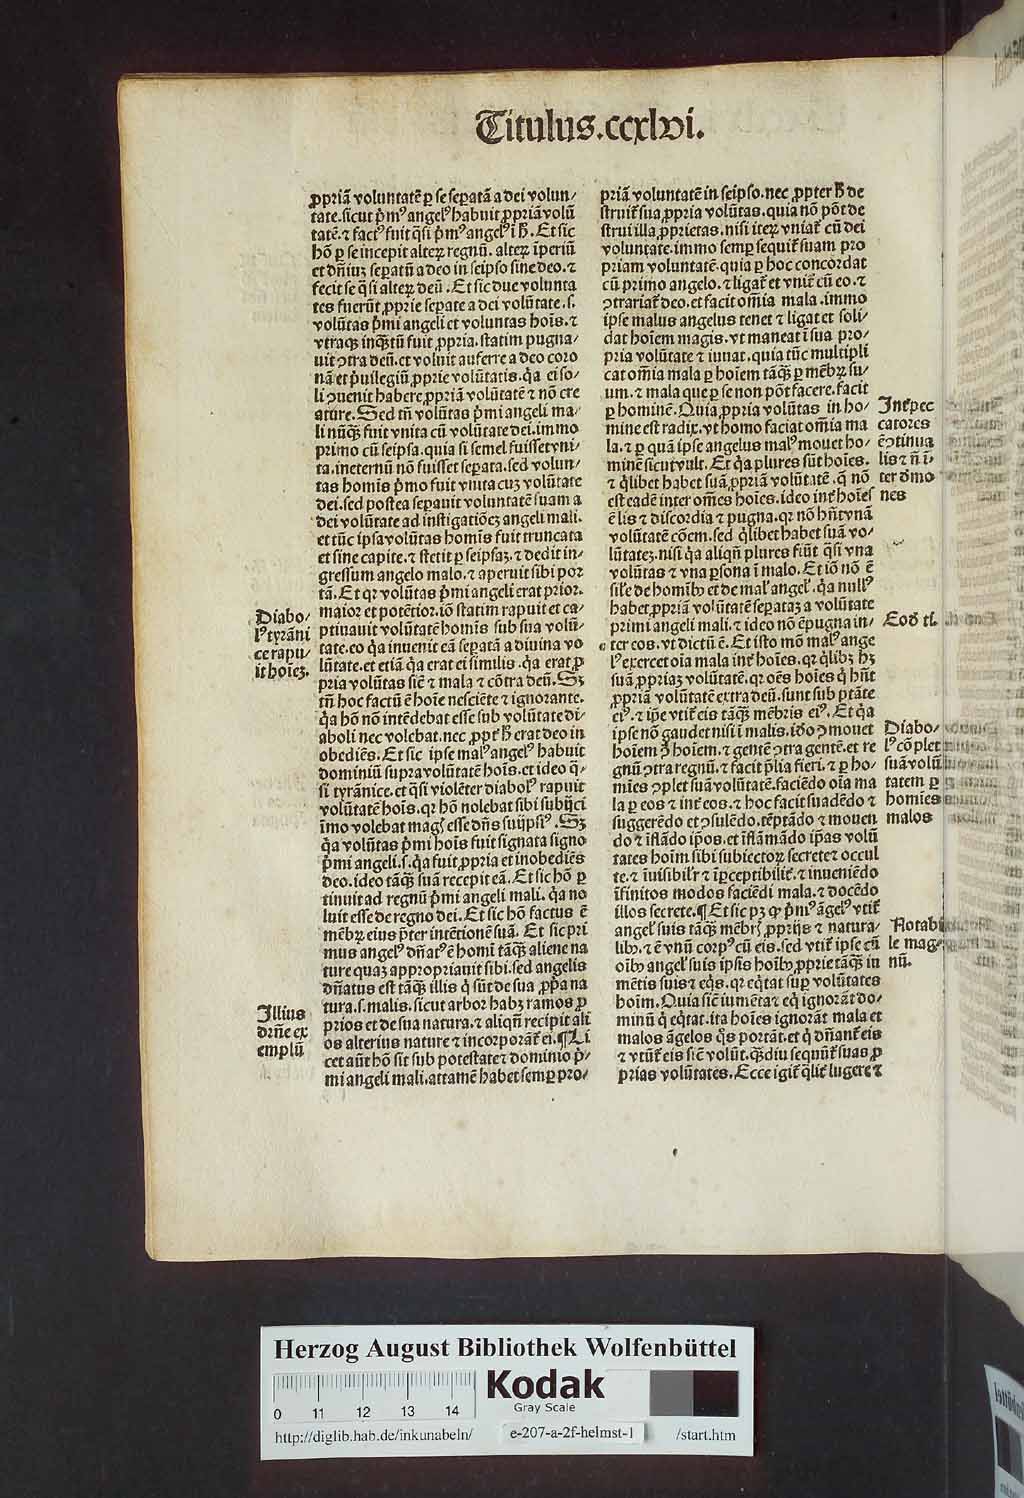 Titulus.ccxlvi.
ꝓpriā voluntatē ꝑ se seꝑatā a dei volun/
tate. sicut p̄mꝰ angelꝰ habuit ꝓpriā volū
tatē. ⁊ factꝰ fuit q̄si p̄mꝰ angelꝰ ī ħ. Et sic
hō ꝑ se incepit alteꝝ regnū. alteꝝ īperiū
et dn̄iuꝫ seꝑatū a deo in seipso sine deo. ⁊
fecit se q̄si alteꝝ deū. Et sic due volunta
tes fuerūt ꝓprie seꝑate a dei volūtate. s.
volūtas p̄mi angeli et voluntas hoīs. ⁊
vtraqꝫ inqꝫtū fuit ꝓpria. statim pugna/
uit ↄtra deū. et voluit auferre a deo coro
nā et p̄uilegiū ꝓprie volūtatis. q̄a ei so/
li ↄuenit habere ꝓpriā volūtatē ⁊ nō cre
ature. Sed tn̄ volūtas p̄mi angeli ma/
li nūqꝫ fuit vnita cū volūtate dei. immo
primo cū seipsa. quia si semel fuisset vni/
ta. ineternū nō fuisset seꝑata. sed volun/
tas homis p̄mo fuit vnita cuꝫ volūtate
dei. sed postea seꝑauit voluntatē suam a
dei volūtate ad instigatiōeꝫ angeli mali.
et tūc ipsa volūtas homīs fuit truncata
et sine capite. ⁊ stetit ꝑ seipsaꝫ. ⁊ dedit in/
gressum angelo malo. ⁊ aperuit sibi por
tā. Et qꝛ volūtas p̄mi angeli erat prior.
maior et potētior. iō statim rapuit et ca/
ptiuauit voluntatē homīs sub sua volū/
tate. eo q̄a inuenit eā seꝑatā a diuina vo
lūtate. et etiā q̄a erat ei similis. q̄a erat ꝓ
pria volūtas siĉ ⁊ mala ⁊ cōtra deū. Sꝫ
tn̄ hoc factū ē hoīe nesciēte ⁊ ignorante.
q̄a hō nō intēdebat esse sub volūtate di/
aboli nec volebat. nec ꝓpt̄ ħ erat deo in
obediēs. Et sic ipse malꝰ angelꝰ habuit
dominiū supra volūtatē hoīs. et ideo q̄/
si tyrānice. et q̄si violēter diabolꝰ rapuit
volūtatē hoīs. qꝛ hō nolebat sibi subijci
īmo volebat mag̃ esse dn̄s suijpsiꝰ. Sꝫ
q̄a volūtas p̄mi hoīs fuit signata signo
p̄mi angeli. s. q̄a fuit ꝓpria et inobediēs
deo. ideo tāqꝫ suā recepit eā. Et sic hō ꝑ
tinuit ad regnū p̄mi angeli mali. q̄a no
luit esse de regno dei. Et sic hō factus ē
mēbꝝ eius p̄ter intētionē suā. Et sic pri
mus angelꝰ dn̄atꝰ ē homī tāqꝫ aliene na
ture quaꝫ appropriauit sibi. sed angelis
dn̄atus est tāqꝫ illis q̄ sūt de sua ꝓp̄a na
tura. s. malis. sicut arbor habꝫ ramos ꝓ
prios et de sua natura. ⁊ aliqn̄ recipit alī
os alterius nature ⁊ incorporāt̄ ei. ¶Li
cet aūt hō sit sub potestate ⁊ dominio p̄/
mi angeli mali. attamē habet semꝑ pro/
Diabo/
lꝰ tyrāni
ce rapu/
it hoīeꝫ.
Illius
drn̄e ex
emplū
priā voluntatē in seipso. nec ꝓpter ħ de
struit̄ sua ꝓpria volūtas. quia nō pōt de
strui illa ꝓprietas. nisi iteꝝ vniat̄ cū dei
voluntate. immo semꝑ sequit̄ suam pro
priam voluntatē. quia ꝑ hoc concordat
cū primo angelo. ⁊ ligat̄ et vnit̄ cū eo. ⁊
ↄtrariat̄ deo. et facit om̄ia mala. immo
ipse malus angelus tenet ⁊ ligat et soli/
dat hoīem magis. vt maneat ī sua pro/
pria volūtate ⁊ iuuat. quia tūc multipli
cat om̄ia mala ꝑ hoīem tāqꝫ ꝑ mēbꝝ su/
um. ⁊ mala que ꝑ se non pōt facere. facit
ꝑ hominē. Quia ꝓpria volūtas in ho/
mine est radix. vt homo faciat om̄ia ma
la. ⁊ ꝑ quā ipse angelus malꝰ mouet ho/
minē sicut vult. Et q̄a plures sūt hoīes.
⁊ q̄libet habet suā ꝓpriā volūtatē. q̄ nō
est eadē inter om̄es hoīes. ideo int̄ hoīes
ē lis ⁊ discordia ⁊ pugna. qꝛ nō hn̄t vnā
volūtatē cōem. sed q̄libet habet suā vo/
lūtateꝫ. nisi q̄a aliqn̄ plures fiūt q̄si vna
volūtas ⁊ vna ꝑsona ī malo. Et iō nō ē
sil̄e de homībꝰ et de mal̄ angel̄. q̄a nullꝰ
habet ꝓpriā volūtatē seꝑataꝫ a volūtate
primi angeli mali. ⁊ ideo nō ē pugna in/
ter eos. vt dictū ē. Et isto mō malꝰ ange
lꝰ exercet oīa mala int̄ hoīes. qꝛ q̄libꝫ hꝫ
suā ꝓpriaꝫ volūtatē. qꝛ oēs hoīes q̄ hn̄t
ꝓpriā volūtatē extra deū. sunt sub ptāte
eiꝰ. ⁊ ip̄e vtit̄ eis tāqꝫ mēbris eiꝰ. Et q̄a
ipse nō gaudet nisi ī malis. iđo ↄmouet
hoīem ↄ̄ hoīem. ⁊ gentē ↄtra gentē. et re
gnū ↄtra regnū. ⁊ facit p̄lia fieri. ⁊ ꝑ ho/
mīes ↄplet suā volūtatē. faciēdo oīa ma
la ꝑ eos ⁊ int̄ eos. ⁊ hoc facit suadēdo ⁊
suggerēdo et ↄsulēdo. tēptādo ⁊ mouen
do ⁊ īflādo ip̄os. et īflāmādo ip̄as volū
tates hoīm sibi subiectoꝝ secrete ⁊ occul
te. ⁊ īuisibilr̄ ⁊ īꝑceptibilit̄. ⁊ inueniēdo
īfinitos modos faciēdi mala. ⁊ docēdo
illos secrete. ¶Et sic pꝫ ꝙ p̄mꝰ āgelꝰ vtit̄
angel̄ suis tāqꝫ mēbꝛ̄ ꝓprijs ⁊ natura/
libꝰ. ⁊ ē vnū corpꝰ cū eis. sed vtit̄ ipse cū
oībꝰ angel̄ suis ipsis hoībꝰ ꝓprie tāqꝫ iu
mētis suis ⁊ eq̄s. qꝛ eq̄tat suꝑ volūtates
hoīm. Quia siĉ iumēta ⁊ eq̄ ignorāt do/
minū q̄ eq̄tat. ita hoīes ignorāt mala et
malos āgelos q̄s portāt. et q̄ dn̄ant̄ eis
⁊ vtūt̄ eis siĉ volūt. qꝫdiu sequūt̄ suas ꝓ
prias volūtates. Ecce igit̄ q̄lit̄ lugere ⁊
Int̄ pec
catores
ē ↄtinua
lis ⁊ n̄ ī/
ter đmo
nes
Eođ ti.
Diabo/
lꝰ cōplet
suā volū
tatem ꝑ
homīes
malos
Notabi
le mag/
nū.
Herzog August Bibliothek Wolfenbüttel
Kodak
Gray Scale
0 11 12 13 14
http://diglib.hab.de/inkunabeln/ e-207-a-2f-helmst-1 /start.htm